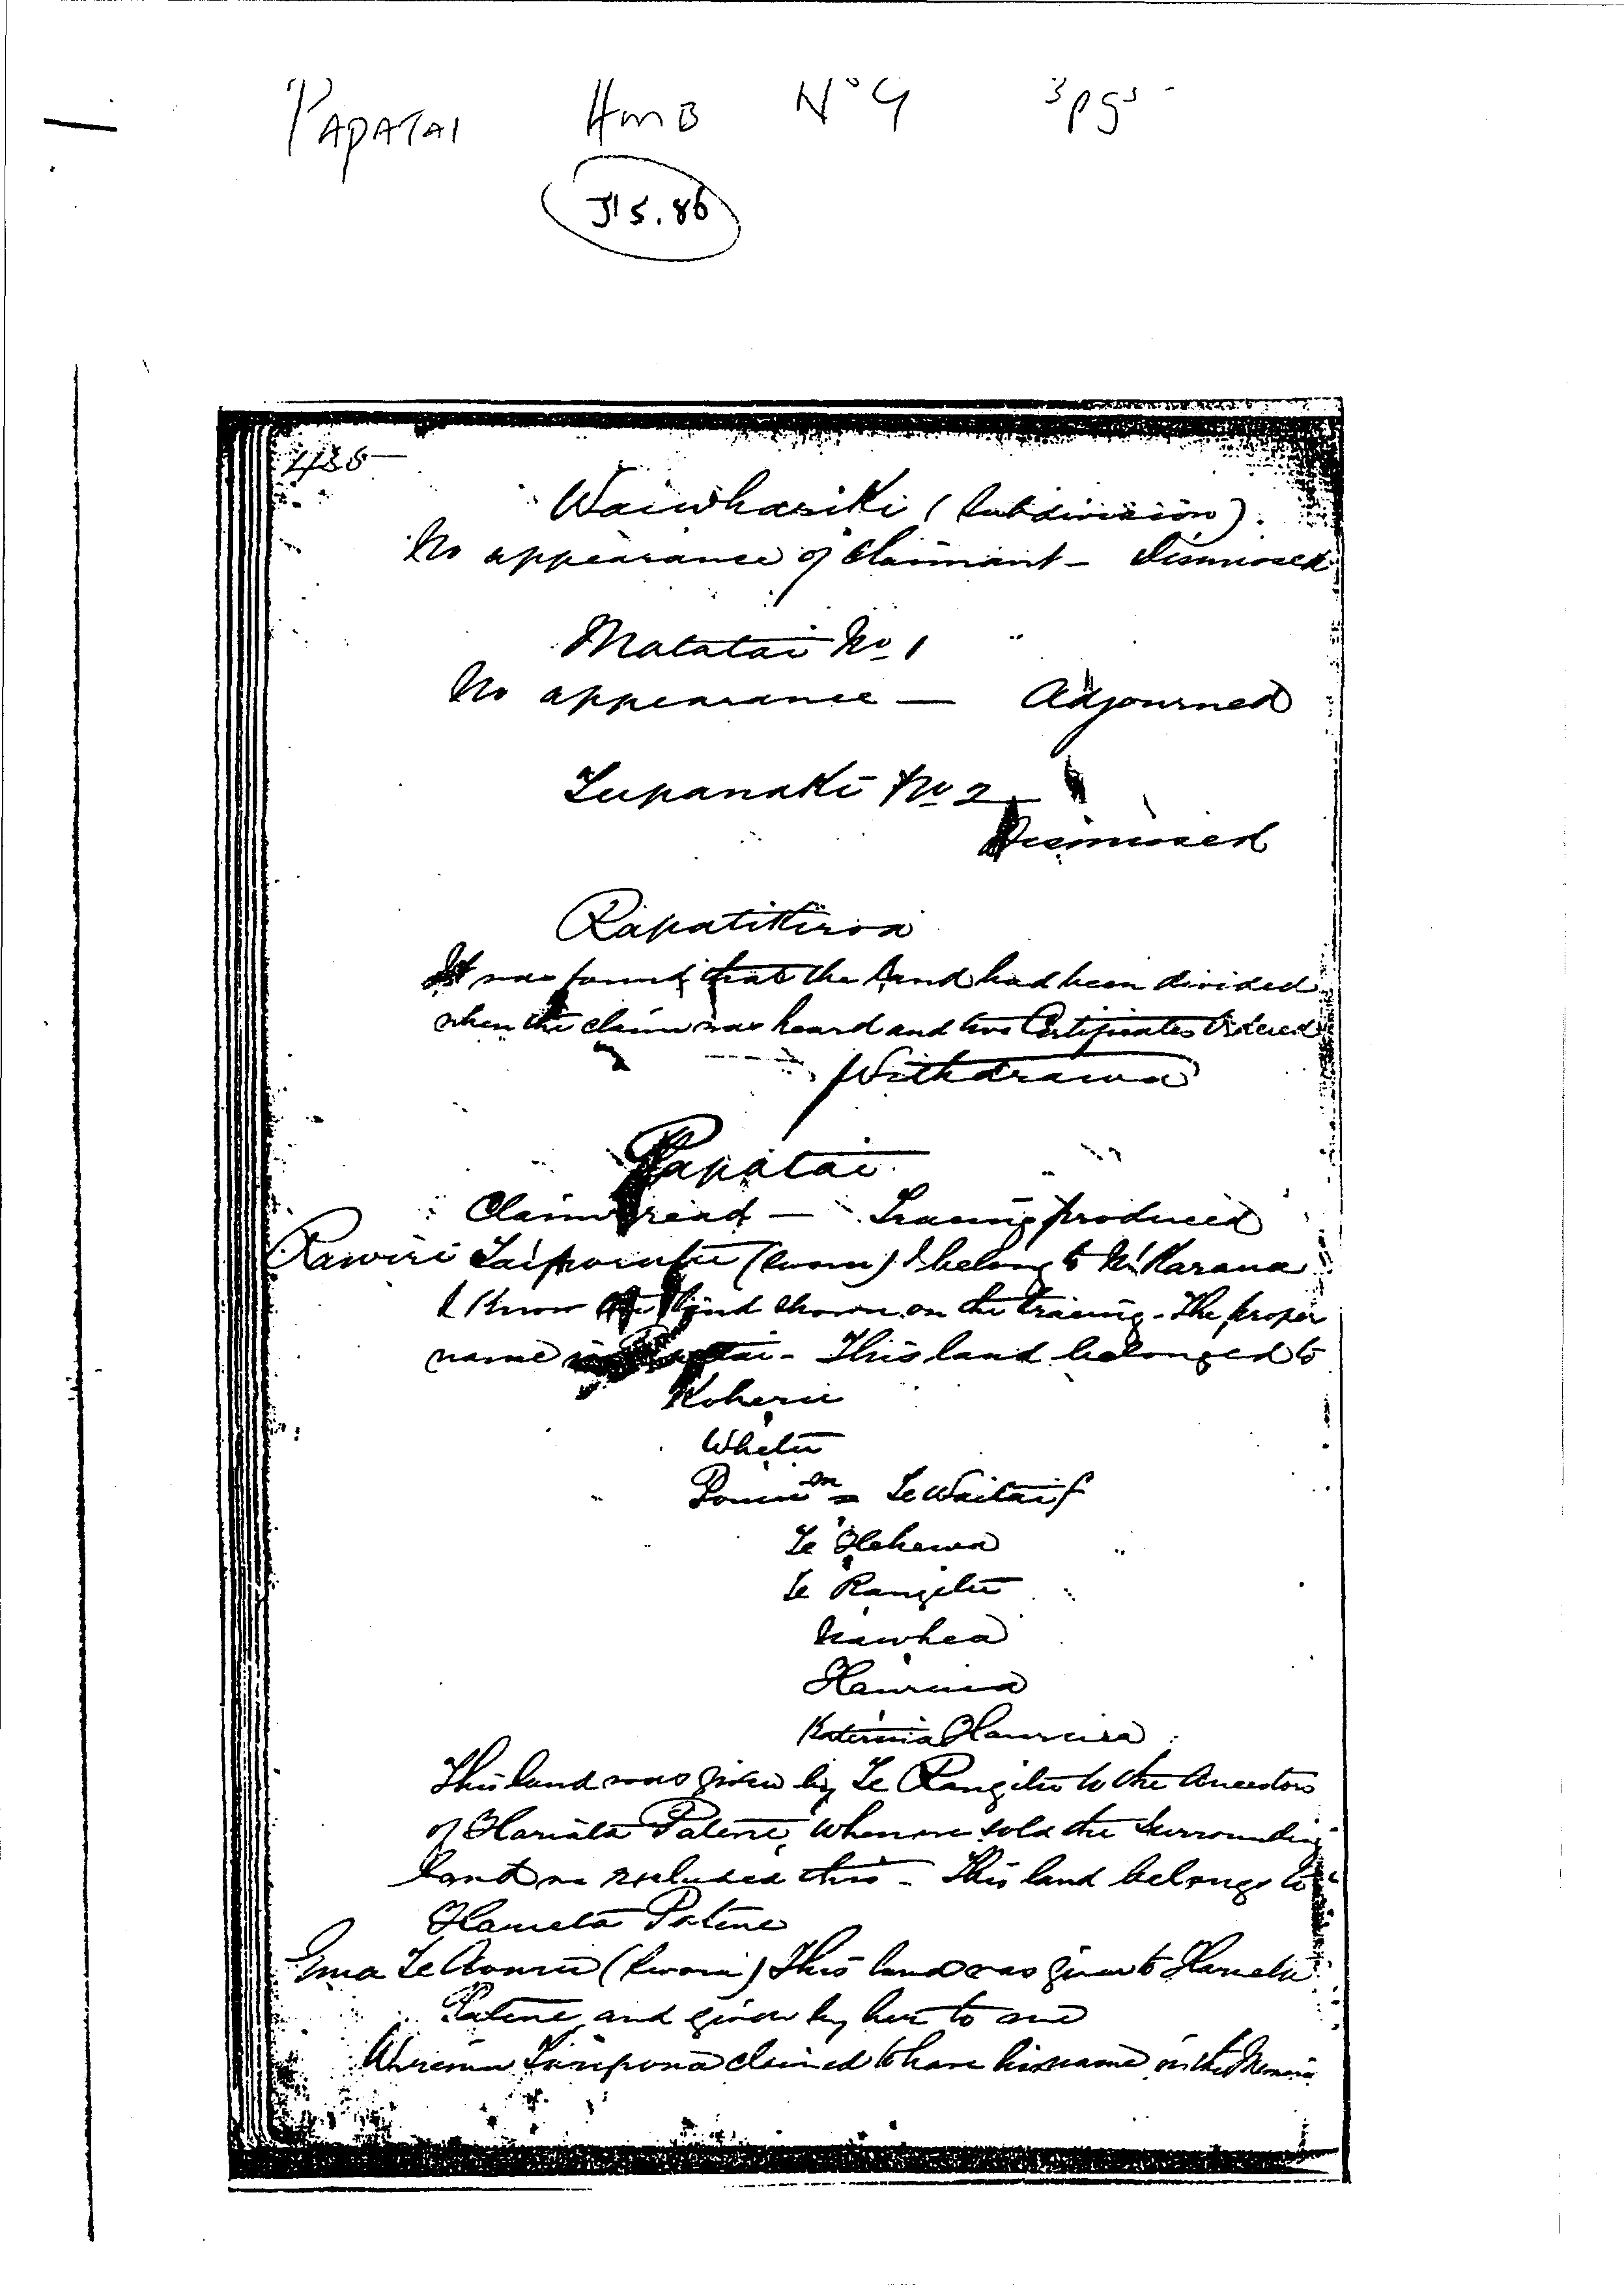 PAPATAI HMB No 9 3pgs
J15.86
Waiwhariki (Subdivision).
No appearance of Claimant - Dismissed
Matatai No 1
No appearance — Adjourned
Tupanaki No 2
Dismissed
Rapatitiroa
It was found that the land had been divided
when the claim was heard and two Certificates Ordered
Withdrawn
Papatai
Claim read — Tracing produced
Rawiri (Sworn) I belong to
I know the land shown on the tracing - The proper
name is Papatai - This land belonged to
Koheru
Whetu
m = Te Waitai f
Te Hehewa
Te Rangitu
Nawhea
Haureia
Katerina Haureia
This land was given by Te Rangitu to the Ancestors
of Harieta Patene, when we sold the surrounding
land we excluded this - This land belongs to
Harieta Patene
Ema Te (Sworn) This land was given to Harieta
Patene and given by her to me
claimed to have his name in the